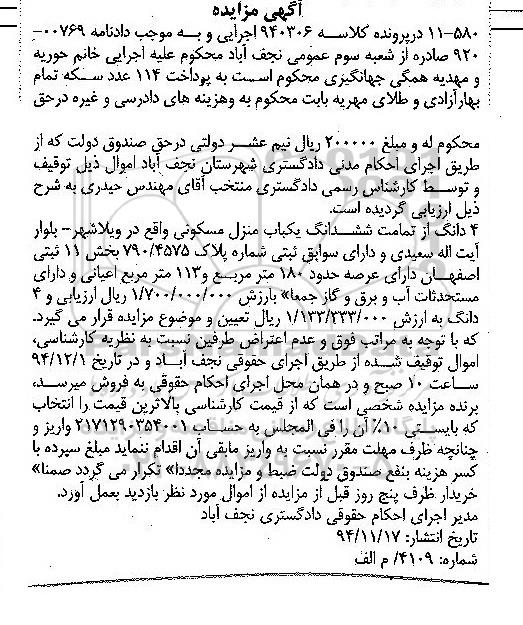 آگهی مزایده
۱۱-۵۸۰ درپرونده کلاسه ۹۴۰۳۰۶ اجرایی و به موجب دادنامه ۰۰۷۶۹-
۹۲۰ صادره از شعبه سوم عمومی نجف آباد محکوم علیه اجرایی خانم حوریه
و مهدیه همگی جهانگیری محکوم است به پرداخت ۱۱۴ عدد سکه تمام
بهارآزادی و طلای مهریه بابت محکوم به وهزینه های دادرسی و غیره درحق
محکوم له و مبلغ ۲۰۰۰۰۰ ریال نیم عشر دولتی درحق صندوق دولت که از
طریق اجرای احکام مدنی دادگستری شهرستان نجف آباد اموال ذیل توقیف
و توسط کارشناس رسمی دادگستری منتخب آقای مهندس حیدری به شرح
ذیل ارزیابی گردیده است.
۴ دانگ از تمامت ششدانگ یکباب منزل مسکونی واقع در ویلاشهر- بلوار
آیت اله سعیدی و دارای سوابق ثبتی شماره پلاک ۷۹۰/۴۵۷۵ بخش ۱۱ ثبتی
اصفهان دارای عرصه حدود ۱۸۰ متر مربع و۱۱۳ متر مربع اعیانی و دارای
مستحدثات آب و برق و گاز جمعا» بارزش ۱/۷۰۰/۰۰۰/۰۰۰ ریال ارزیابی و ۴
دانگ به ارزش ۱/۱۳۳/۳۳۳/۰۰۰ ریال تعیین و موضوع مزایده قرار می گیرد.
که با توجه به مراتب فوق و عدم اعتراض طرفین نسبت به نظریه کارشناسی،
اموال توقیف شده از طریق اجرای حقوقی نجف آباد و در تاریخ ۹۴/۱۲/۱
ساعت ۱۰ صبح و در همان محل اجرای احکام حقوقی به فروش میرسد،
برنده مزایده شخصی است که از قیمت کارشناسی بالاترین قیمت را انتخاب
که بایستی ۱۰٪ آن را فی المجلس به حساب ۲۱۷۱۲۹۰۳۵۴۰۰۱ واریز و
چنانچه ظرف مهلت مقرر نسبت به واریز مابقی آن اقدام ننماید مبلغ سپرده با
کسر هزینه بنفع صندوق دولت ضبط و مزایده مجددا» تکرار می گردد ضمنا»
خریدار ظرف پنج روز قبل از مزایده از اموال مورد نظر بازدید بعمل آورد.
مدیر اجرای احکام حقوقی دادگستری نجف آباد
تاریخ انتشار: ۹۴/۱۱/۱۷
شماره: ۴۱۰۹/ م الف